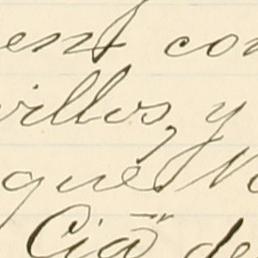 ent con
villos, y
que
Cia de